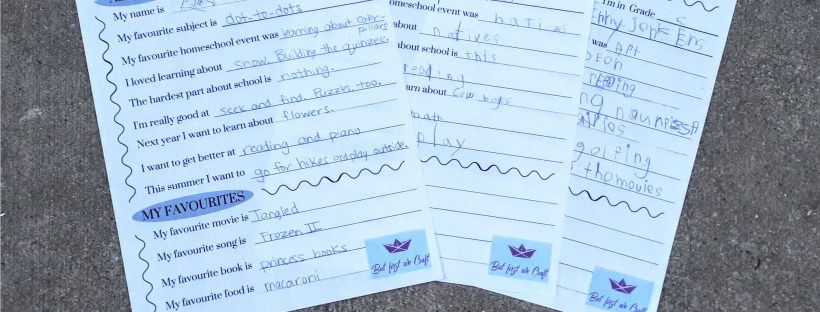 My name is
My favourite subject is dot-to-dots
My favourite homeschool event was learning about caterpillars
I loved learning about snow. Building the quinzee.
The hardest part about school is nothing.
I'm really good at seek and find. Puzzle, too.
Next year I want to learn about flowers.
I want to get better at reading and piano
This summer I want to go for hikes and play outside.
MY FAVOURITES
My favourite movie is Tangled
My favourite song is Frozen II
My favourite book is princess books
My favourite food is macaroni
But first we Craft
homeschool event was
about natives
about school is this
reading
learn about cowboys
math
play
But first we Craft
I'm in Grade
was Art
golfing
the movies
But first we Craft